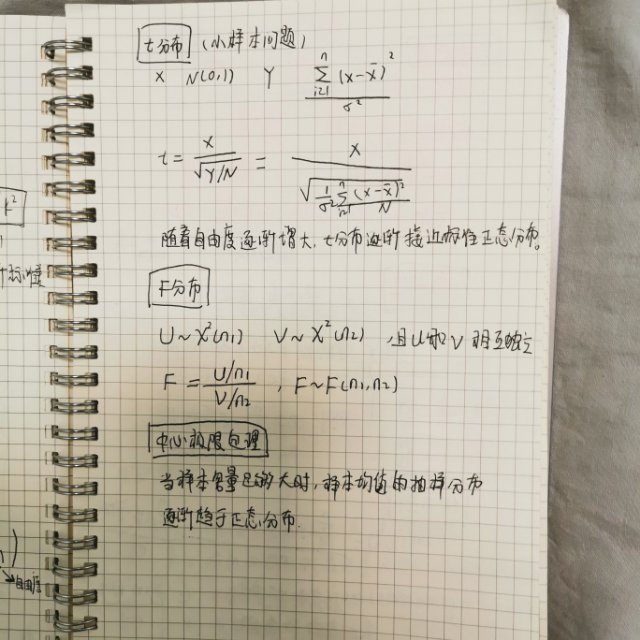 k²
计标准
)
→自由度
t分布 (小样本问题)
X N(0,1) Y \frac{\sum_{i=1}^{n}(x-\bar{x})^2}{σ^2}
t = \frac{X}{\sqrt{Y/N}} = \frac{X}{\sqrt{\frac{1}{σ^2}\sum_{i=1}^{n}\frac{(x-\bar{x})^2}{N}}}
随着自由度逐渐增大,t分布逐渐接近标准正态分布。
F分布
U~X²(n1) V~X²(n2) ,且U和V相互独立
F = \frac{U/n1}{V/n2} , F~F(n1,n2)
中心极限定理
当样本容量足够大时,样本均值的抽样分布
逐渐趋于正态分布.